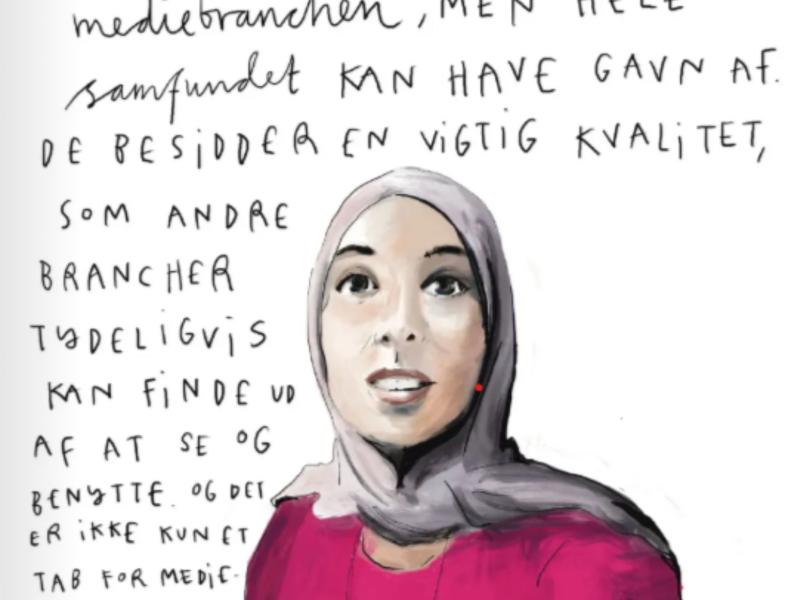 mediebranchen, MEN HELE
samfundet KAN HAVE GAVN AF.
DE BESiDDER EN ViGTiG KVALiTET,
SOM ANDRE
BRANCHER
TYDELiGViS
KAN FiNDE UD
AF AT SE OG
BENYTTE. OG DET
ER iKKE KUN ET
TAB FOR MEDiE-